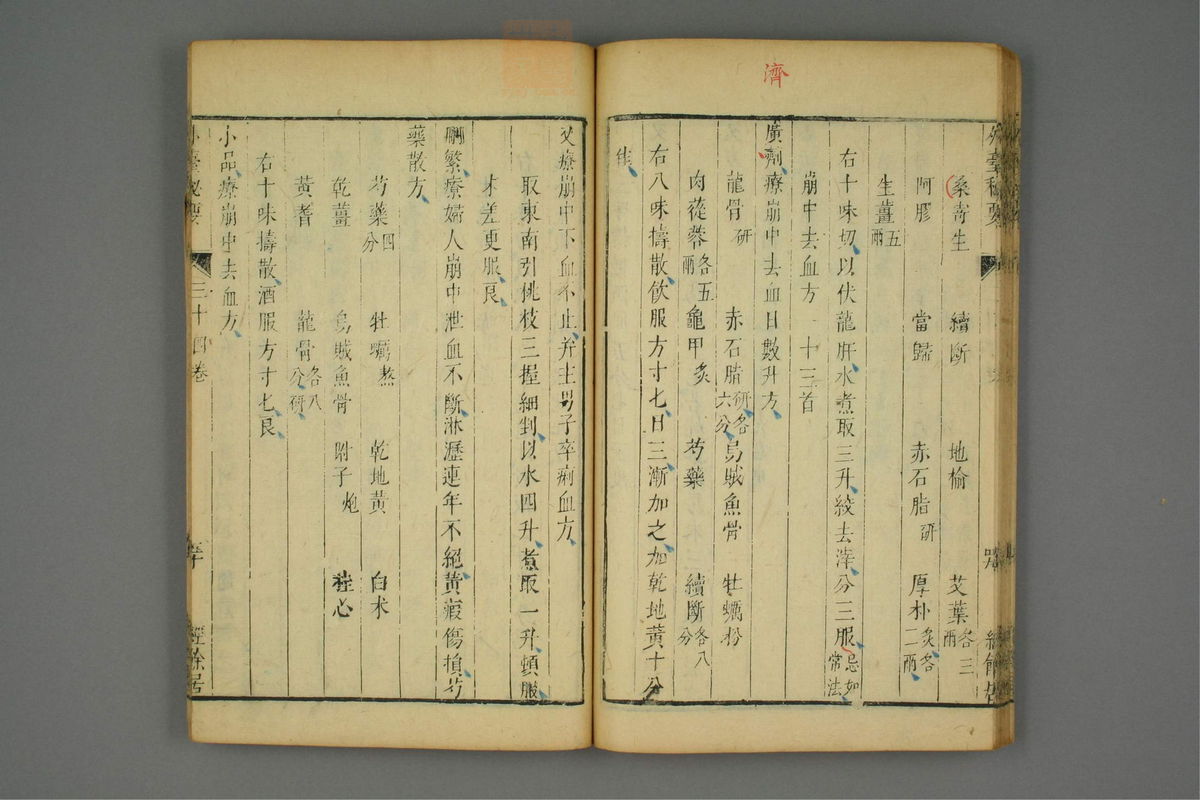 濟
外臺秘要
桑寄生 續斷 地榆 艾葉各三兩
阿膠 當歸 赤石脂研 厚朴炙各二兩
生薑五兩
右十味切以伏龍肝水煮取三升絞去滓分三服忌如常法
崩中去血方一十三首
廣劑療崩中去血日數升方
龍骨研 赤石脂研各六分 烏賊魚骨 牡蠣粉
肉蓯蓉各五兩 龜甲炙 芍藥 續斷各八分
右八味擣散飲服方寸匕日三漸加之加乾地黃十分
佳
又療崩中下血不止并主男子卒痢血方
取東南引桃枝三握細剉以水四升煮取一升頓服
未差更服良
刪繁療婦人崩中泄血不斷淋瀝連年不絕黃瘕傷損芍
藥散方
芍藥四分 牡蠣熬 乾地黃 白朮
乾薑 烏賊魚骨 附子炮 桂心
黃耆 龍骨各八分研
右十味擣散酒服方寸匕良
小品療崩中去血方
外臺秘要 三十四卷 五十 經餘居